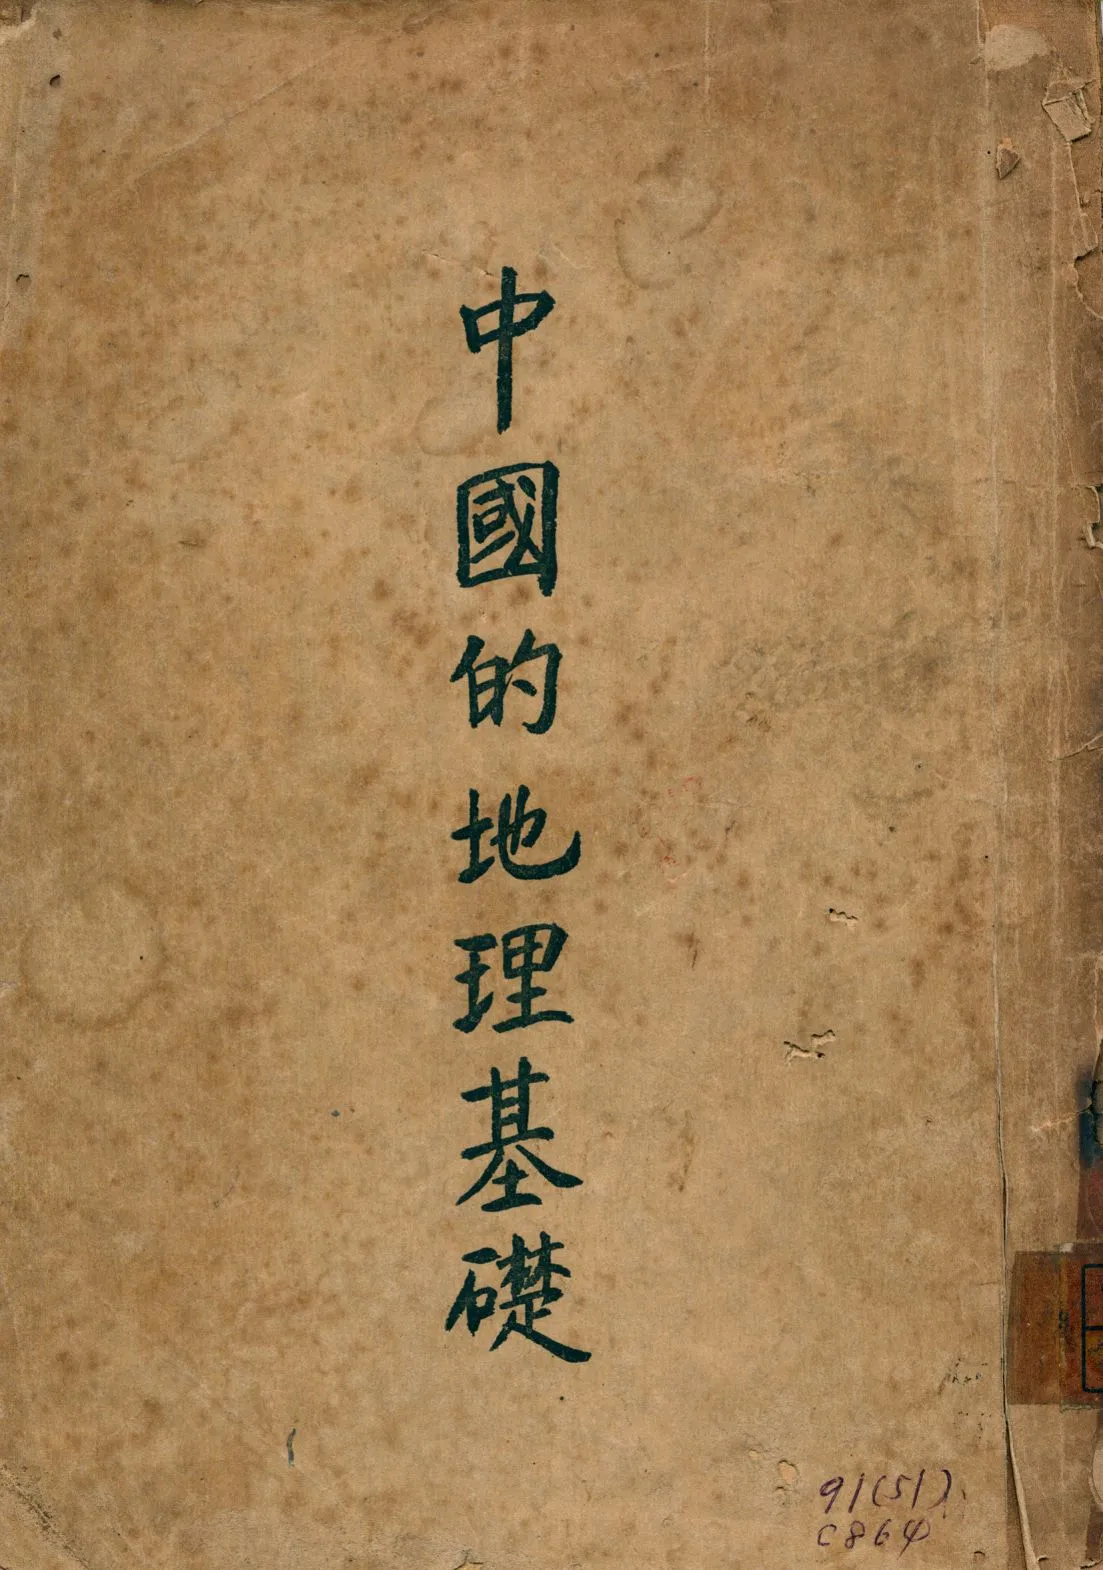 中國的地理基礎
91(51)
C864